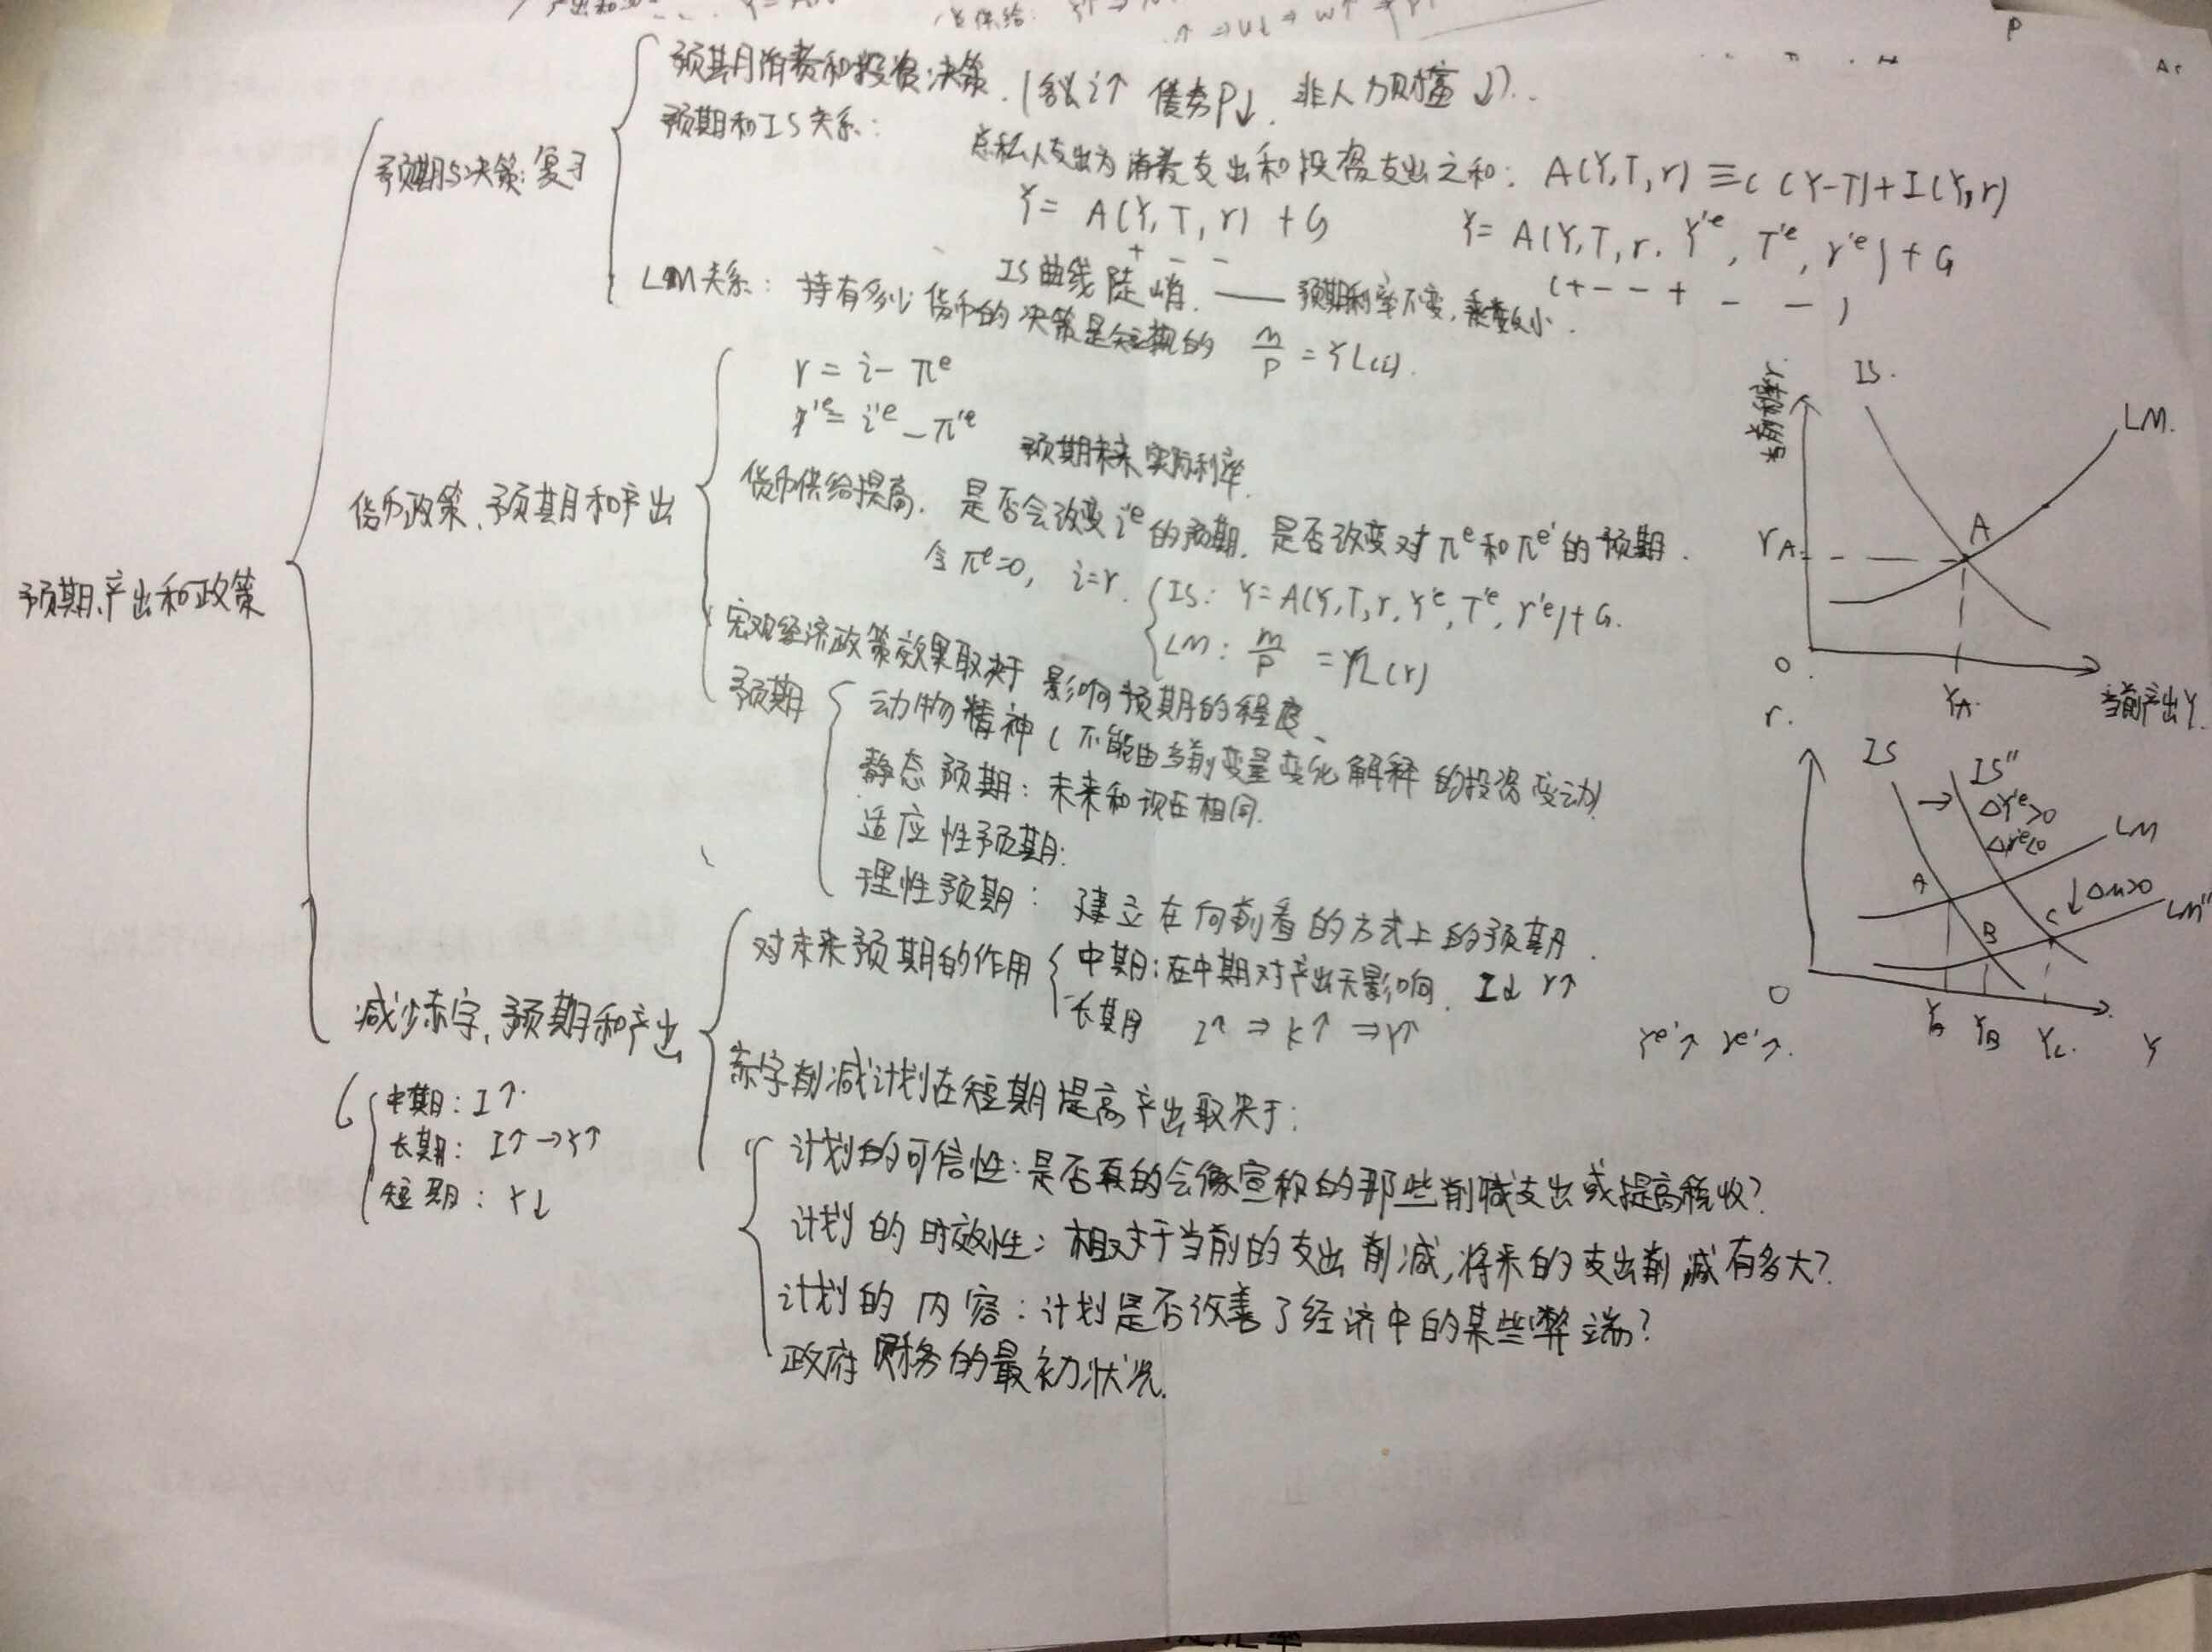 预期消费和投资决策.(名义i↑ 债券P↓. 非人力财富↓)..
预期和IS关系:
总私人支出为消费支出和投资支出之和: A(Y,T,r)≡C(Y-T)+I(Y,r)
预期与决策:复习
Y= A(Y,T,r)+G
+ - -
Y= A(Y,T,r.Y'e,T'e,r'e)+G
(+ - - + - -)
IS曲线陡峭. —— 预期利率不变,乘数小.
LM关系: 持有多少货币的决策是短期的 M/P = YL(i).
r = i- πe
r'e= i'e-π'e
预期未来实际利率.
货币政策、预期和产出
货币供给提高. 是否会改变i'e的预期. 是否改变对πe和πe'的预期.
令πe=0, i=r.
IS: Y=A(Y,T,r,Y'e,T'e,r'e)+G.
LM: M/P =YL(r)
预期、产出和政策
宏观经济政策效果取决于影响预期的程度、
预期
动物精神(不能由当前变量变化解释的投资变动)
静态预期: 未来和现在相同.
适应性预期:
理性预期: 建立在向前看的方式上的预期.
减少赤字,预期和产出
对未来预期的作用
中期:在中期对产出无影响. I↓ r↑
长期 I↑ ⇒ K↑ ⇒Y↑
中期: I↑.
长期: I↑→Y↑
短期: Y↓
赤字削减计划在短期提高产出取决于:
计划的可信性:是否真的会像宣称的那些削减支出或提高税收?
计划的时效性: 相对于当前的支出削减,将来的支出削减有多大?
计划的内容:计划是否改善了经济中的某些弊端?
政府财务的最初状况.
当前利率r.
IS.
LM.
A
rA
O
YA.
当前产出Y.
r.
IS
IS"
ΔY'e>0
Δr'e<0
LM
A
↓ΔM>0
LM"
B
C
O
YA
YB
YC.
Y
Ye'↑ re'↑.